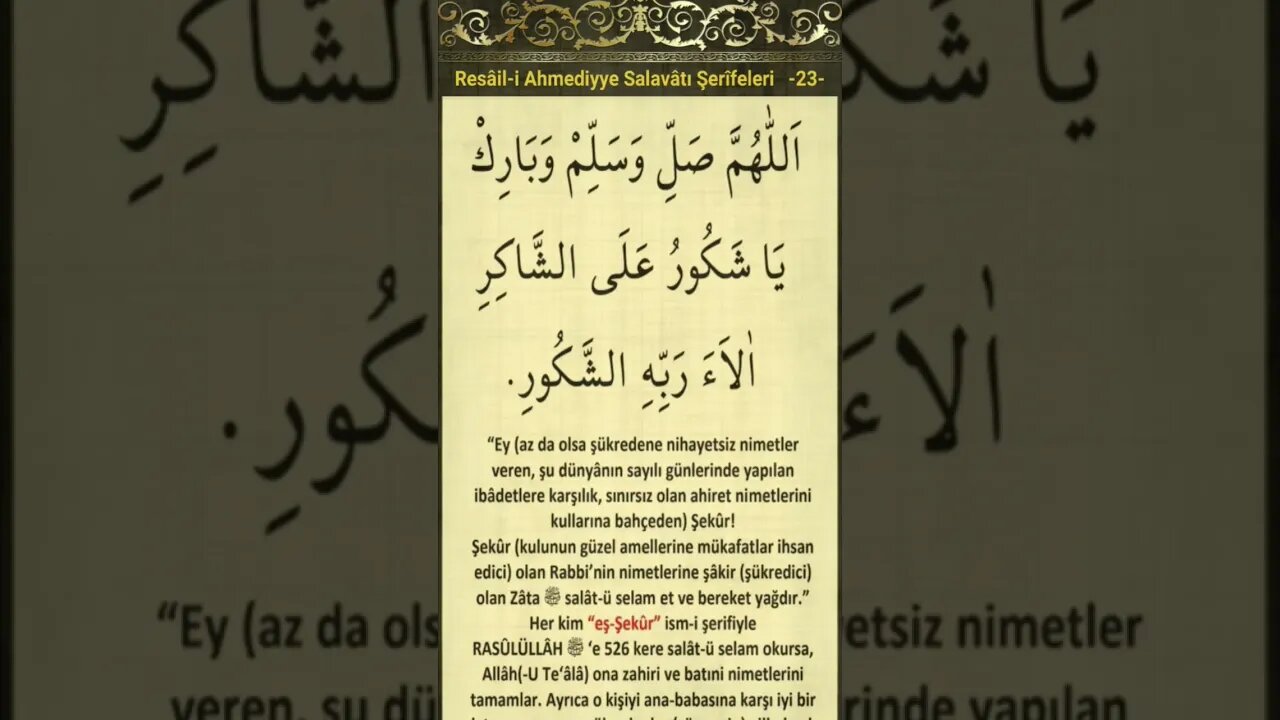 Resâil-i Ahmediyye Salavâtı Şerîfeleri -23-
اَللّٰهُمَّ صَلِّ وَسَلِّمْ وَبَارِكْ
يَا شَكُورُ عَلَى الشَّاكِرِ
اٰلاَءَ رَبِّهِ الشَّكُورِ.
“Ey (az da olsa şükredene nihayetsiz nimetler
veren, şu dünyânın sayılı günlerinde yapılan
ibâdetlere karşılık, sınırsız olan ahiret nimetlerini
kullarına bahçeden) Şekûr!
Şekûr (kulunun güzel amellerine mükafatlar ihsan
edici) olan Rabbi’nin nimetlerine şâkir (şükredici)
olan Zâta ﷺ salât-ü selam et ve bereket yağdır.”
Her kim “eş-Şekûr” ism-i şerifiyle
RASÛLÜLLÂH ﷺ ‘e 526 kere salât-ü selam okursa,
Allâh(-U Te‘âlâ) ona zahiri ve batıni nimetlerini
tamamlar. Ayrıca o kişiyi ana-babasına karşı iyi bir